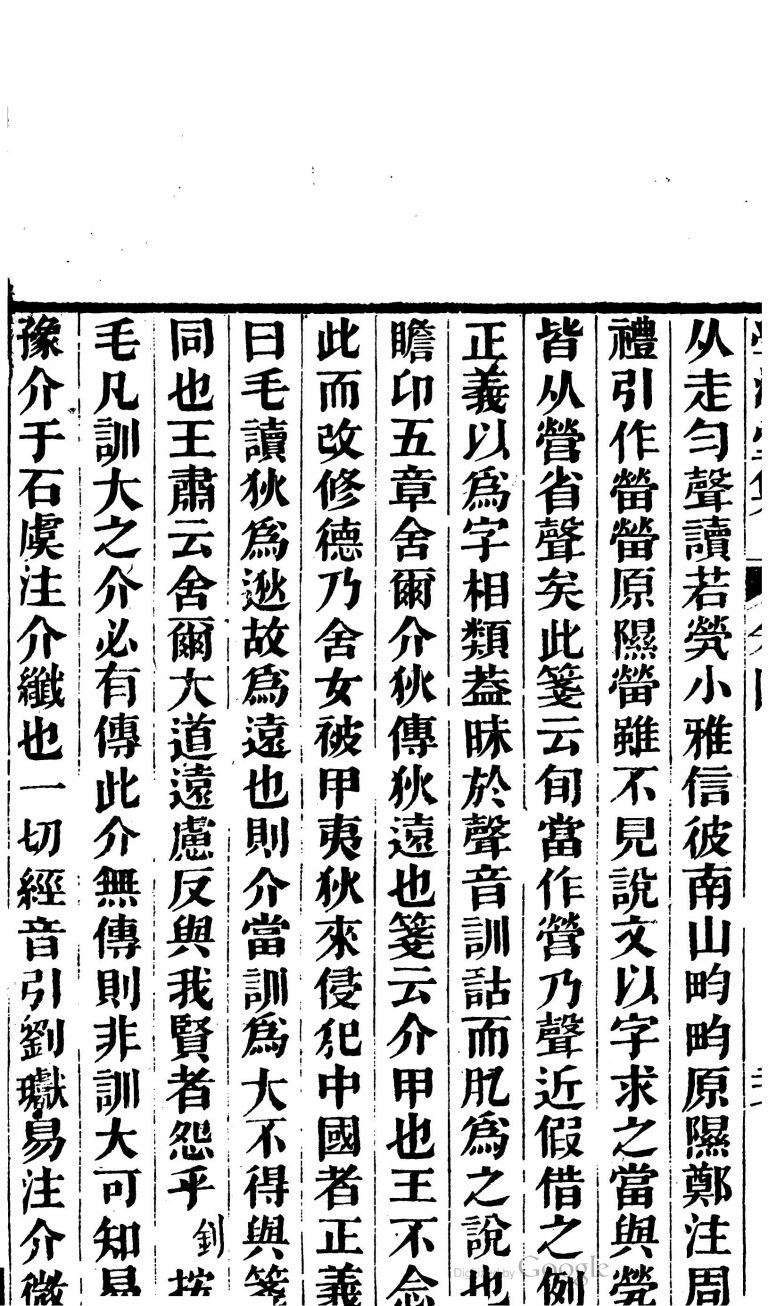 从走勻聲讀若煢小雅信彼南山畇畇原隰鄭注周
禮引作營營原隰營雖不見說文以字求之當與煢
皆从營省聲矣此箋云旬當作營乃聲近假借之例
正義以爲字相類葢昧於聲音訓詁而肊爲之說也
瞻卬五章舍爾介狄傳狄遠也箋云介甲也王不念
此而改修德乃舍女被甲夷狄來侵犯中國者正義
曰毛讀狄爲逖故爲遠也則介當訓爲大不得與箋
同也王肅云舍爾大道遠慮反與我賢者怨乎 釗按
毛凡訓大之介必有傳此介無傳則非訓大可知易
豫介于石虞注介纖也一切經音引劉瓛易注介微
Digitized by Google